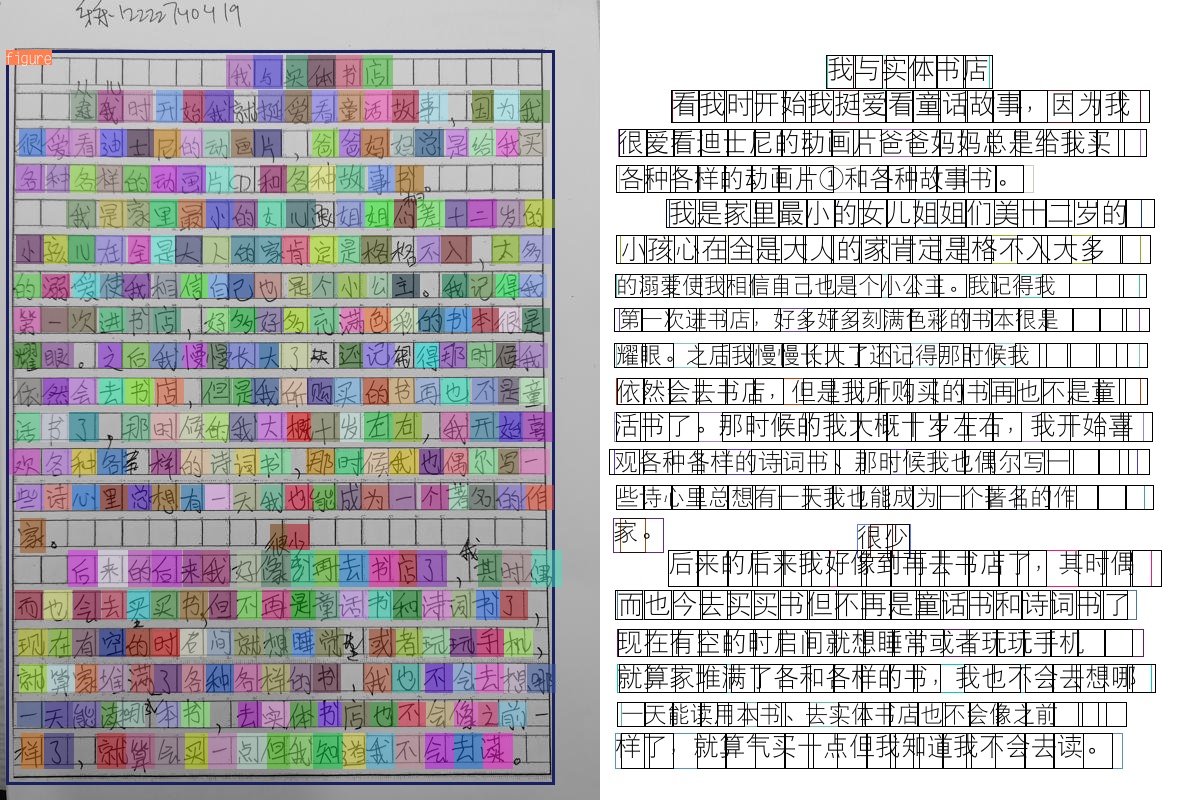 12222740419
figure
我与实体书店
从儿
时开始我就挺爱看童话故事,因为我
很爱看迪士尼的动画片,爸爸妈妈总是给我买
各种各样的动画片CD和各种故事书。
我是家里最小的女儿跟姐姐相差十二岁的
小孩儿在全是大人的家肯定是格格不入,太多
的溺爱使我相信自己也是个小公主。我记得我
第一次进书店,好多好多充满色彩的书本很是
耀眼。之后我慢慢长大了还记得那时候我
依然会去书店,但是我所购买的书再也不是童
话书了,那时候的我大概十岁左右,我开始喜
欢各种各样的诗词书,那时候我也偶尔写一
些诗心里总想有一天我也能成为一个著名的作
家。
很少
后来的后来我好像再去书店了,我其时偶
而也会去买买书,但不再是童话书和诗词书了,
现在有空的时间就想睡觉或者玩玩手机,
就算家堆满了各种各样的书,我也不会去想哪
一天能读那本书,去实体书店也不会像之前一
样了,就算会买一点但我知道我不会去读。
我与实体书店
看我时开始我挺爱看童话故事,因为我
很爱看迪士尼的动画片爸爸妈妈总是给我买
各种各样的动画片①和各种故事书。
我是家里最小的女儿姐姐们美十二岁的
小孩心在全是大人的家肯定是格不入大多
的溺爱使我相信自己也是个小公主。我记得我
第一次进书店,好多好多刻满色彩的书本很是
耀眼。之后我慢慢长大了还记得那时候我
依然会去书店,但是我所购买的书再也不是童
活书了。那时候的我大概十岁左右,我开始喜
观各种各样的诗词书、那时候我也偶尔写一
些诗心里总想有一天我也能成为一个著名的作
家。
很少
后来的后来我好像到再去书店了,其时偶
而也今去买买书但不再是童话书和诗词书了
现在有空的时启间就想睡常或者玩玩手机
就算家堆满了各和各样的书,我也不会去想哪
一天能读用本书、去实体书店也不会像之前
样了,就算气买十点但我知道我不会去读。